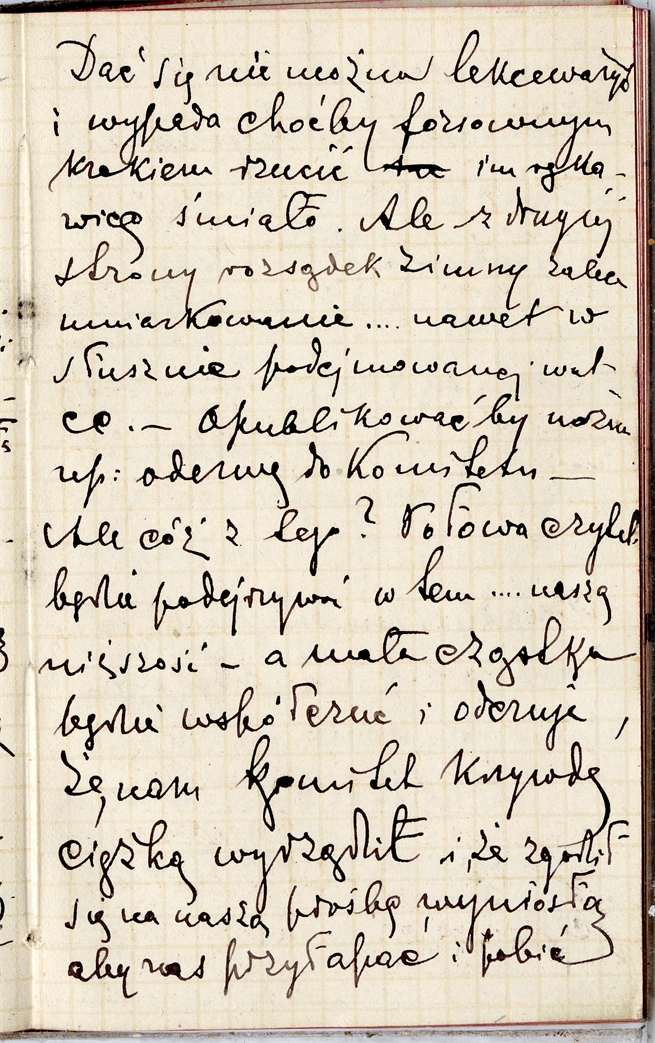 Dać się nie można lekceważyć
i wypada choćby forsownym
krokiem rzucić im ręka-
wicę śmiało. Ale z drugiej
strony rozsądek zimny zaleca
umiarkowanie .... nawet w
słusznie podejmowanej wal-
ce. — Opublikować by można
np: odezwę do Komitetu —
Ale cóż z tego? Połowa czytel.
będzie podejrzywać w tem .... naszą
niższość — a mała cząstka
będzie współczuć i odczuje,
że nam Komitet Krzywdę
ciężką wyrządził i że zgodził
się na naszą prośbę wyniosłą
aby nas przyłapać i pobić